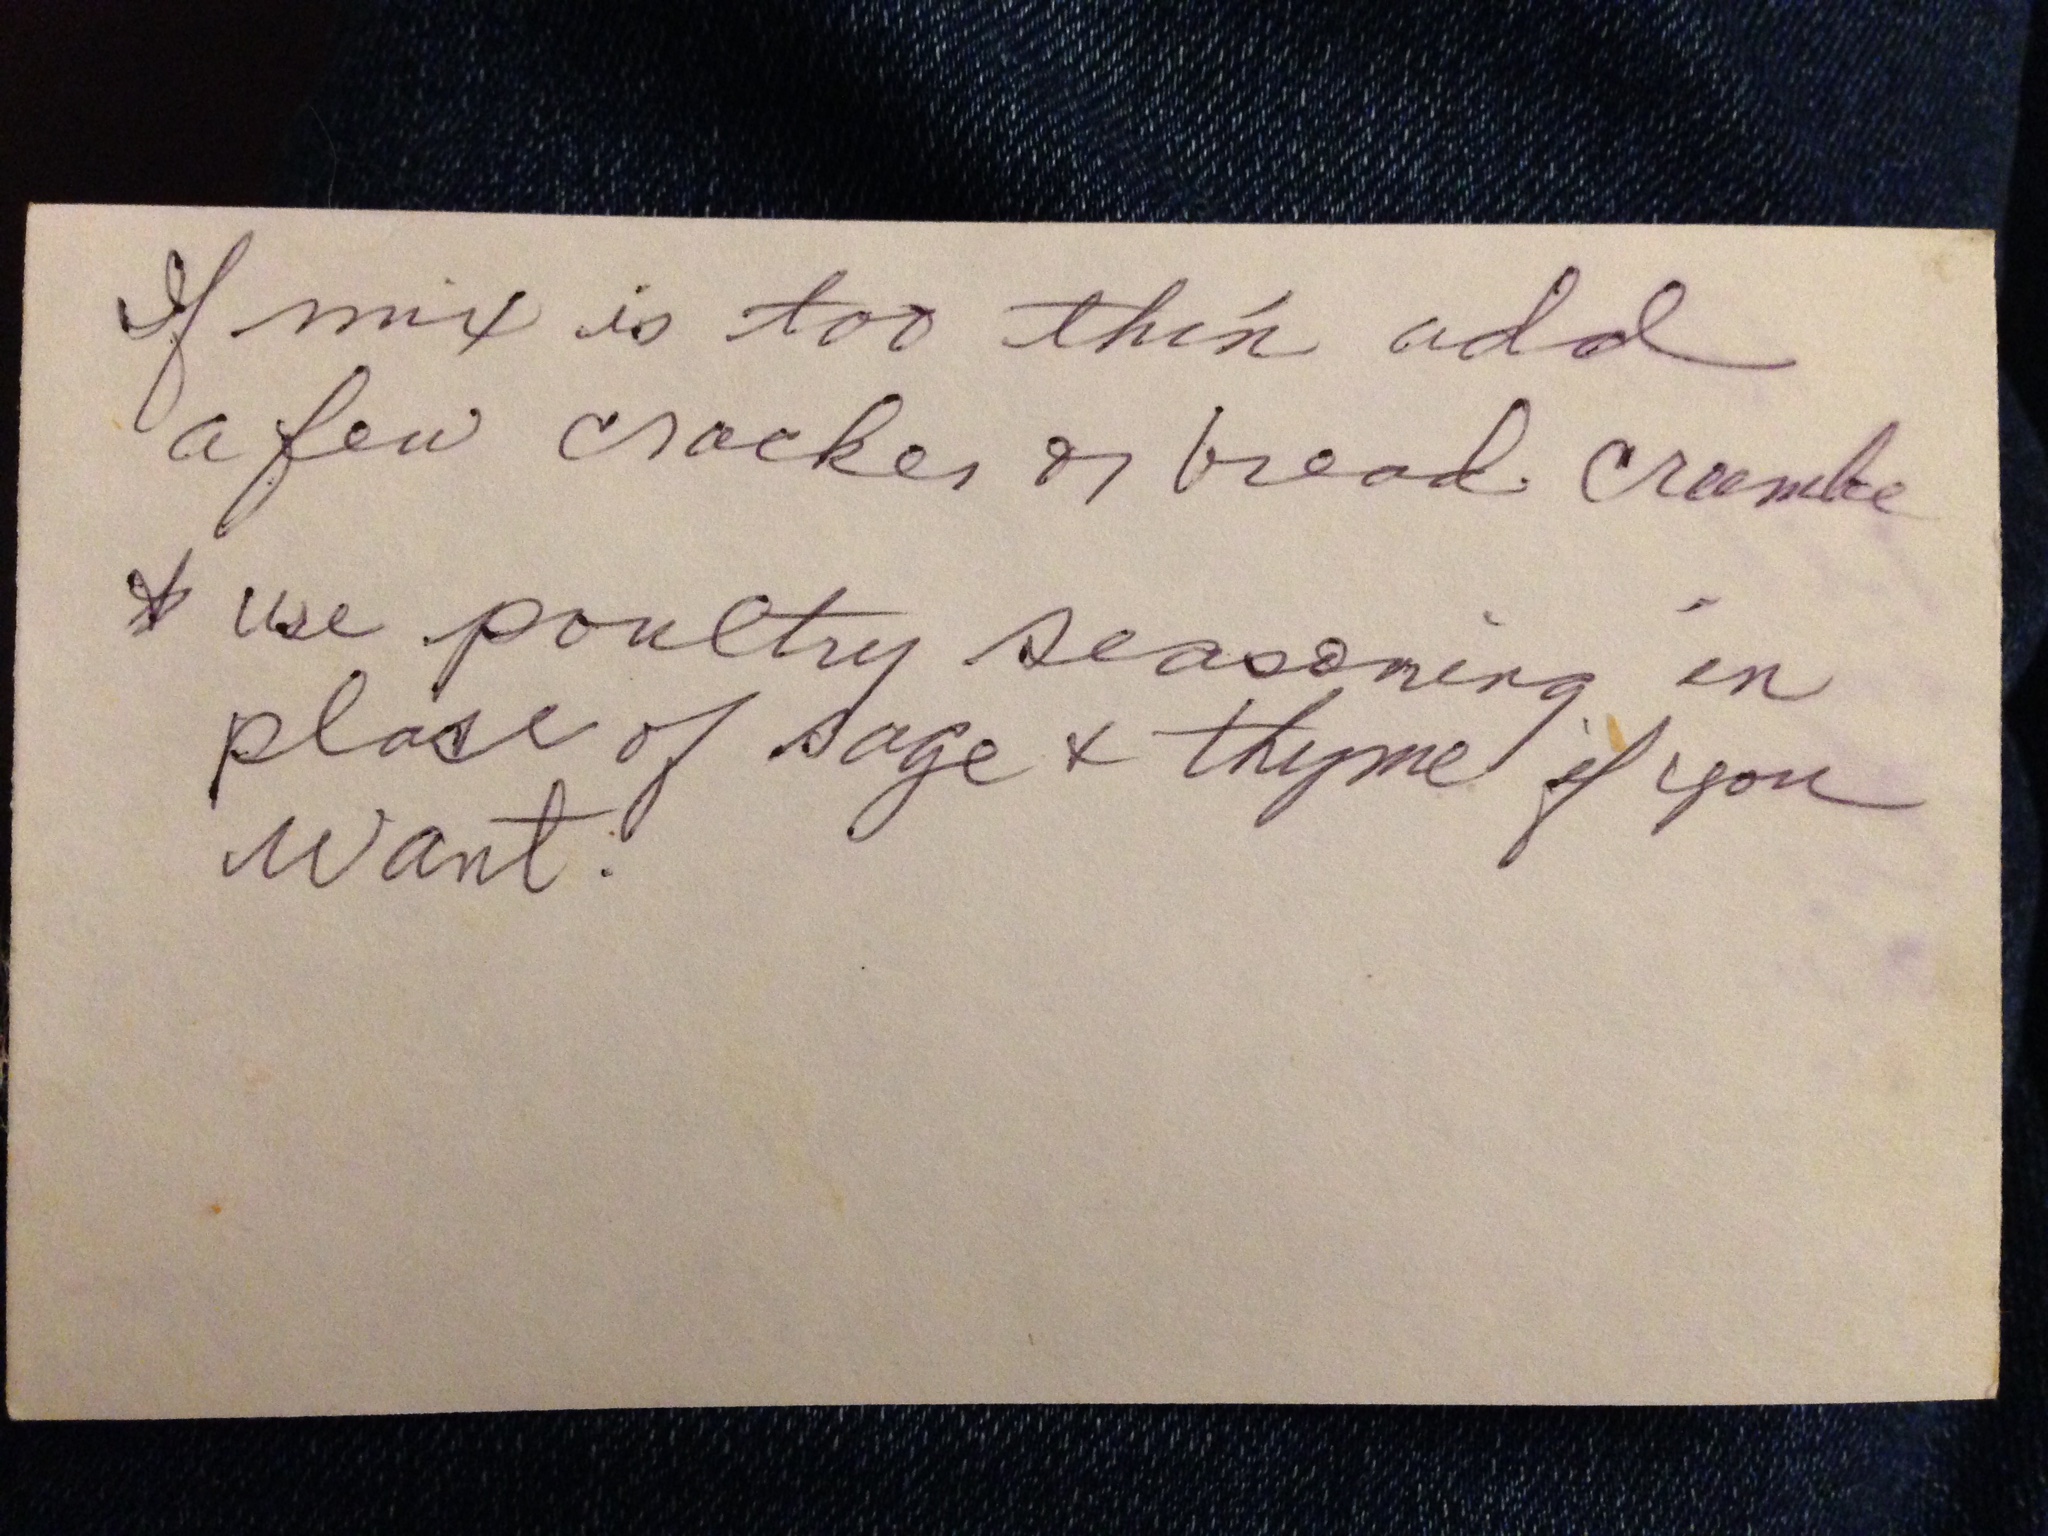 If mix is too thin add
a few cracker or bread crumbs
* use poultry seasoning in
place of sage + thyme if you
want.